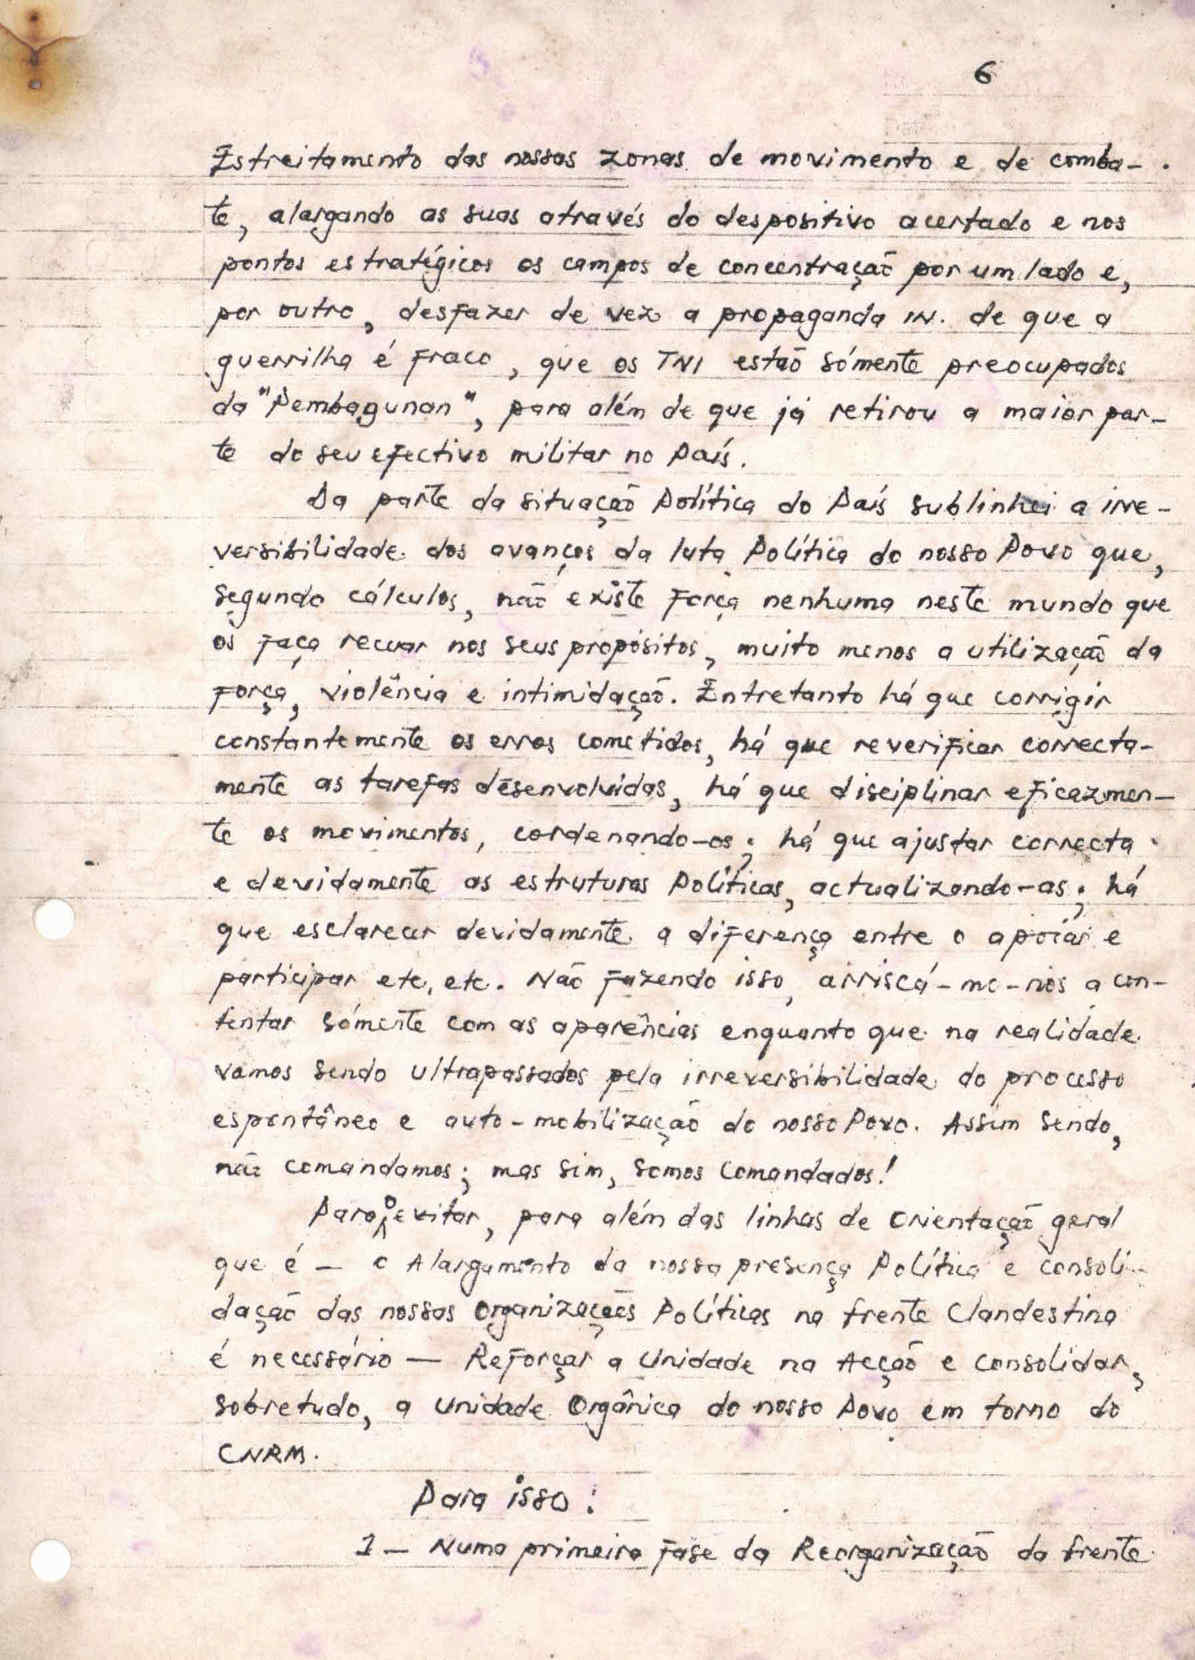 6
Estreitamento das nossas zonas de movimento e de comba-
te, alargando as suas através do despositivo acertado e nos
pontos estratégicos os campos de concentração por um lado e,
por outro, desfazer de vez a propaganda IN. de que a
guerrilha é fraca, que os TNI estão sómente preocupados
da "Pembagunan", para além de que já retirou a maior par-
te do seu efectivo militar no País.
Da parte da situação Política do País sublinhei a irre-
versibilidade dos avanços da luta Política do nosso Povo que,
segundo cálculos, não existe força nenhuma neste mundo que
os faça recuar nos seus propósitos, muito menos a utilização da
força, violência e intimidação. Entretanto há que corrigir
constantemente os erros cometidos, há que reverificar correcta-
mente as tarefas desenvolvidas, há que disciplinar eficazmen-
te os movimentos, cordenando-os; há que ajustar correcta
e devidamente as estruturas Políticas, actualizando-as; há
que esclarecer devidamente a diferença entre o apoiar e
participar etc, etc. Não fazendo isso, arriscá-mo-nos a con-
tentar sómente com as aparências enquanto que na realidade
vamos sendo ultrapassados pela irreversibilidade do processo
espontâneo e auto-mobilização do nosso Povo. Assim sendo,
não comandamos; mas sim, somos comandados!
Para o evitar, para além das linhas de orientação geral
que é - o Alargamento da nossa presença Política e consoli-
dação das nossas organizações Políticas na frente Clandestina
é necessário - Reforçar a Unidade na Acção e consolidar,
sobretudo, a Unidade Orgânica do nosso Povo em torno do
CNRM.
Para isso:
1 - Numa primeira fase da Reorganização da frente